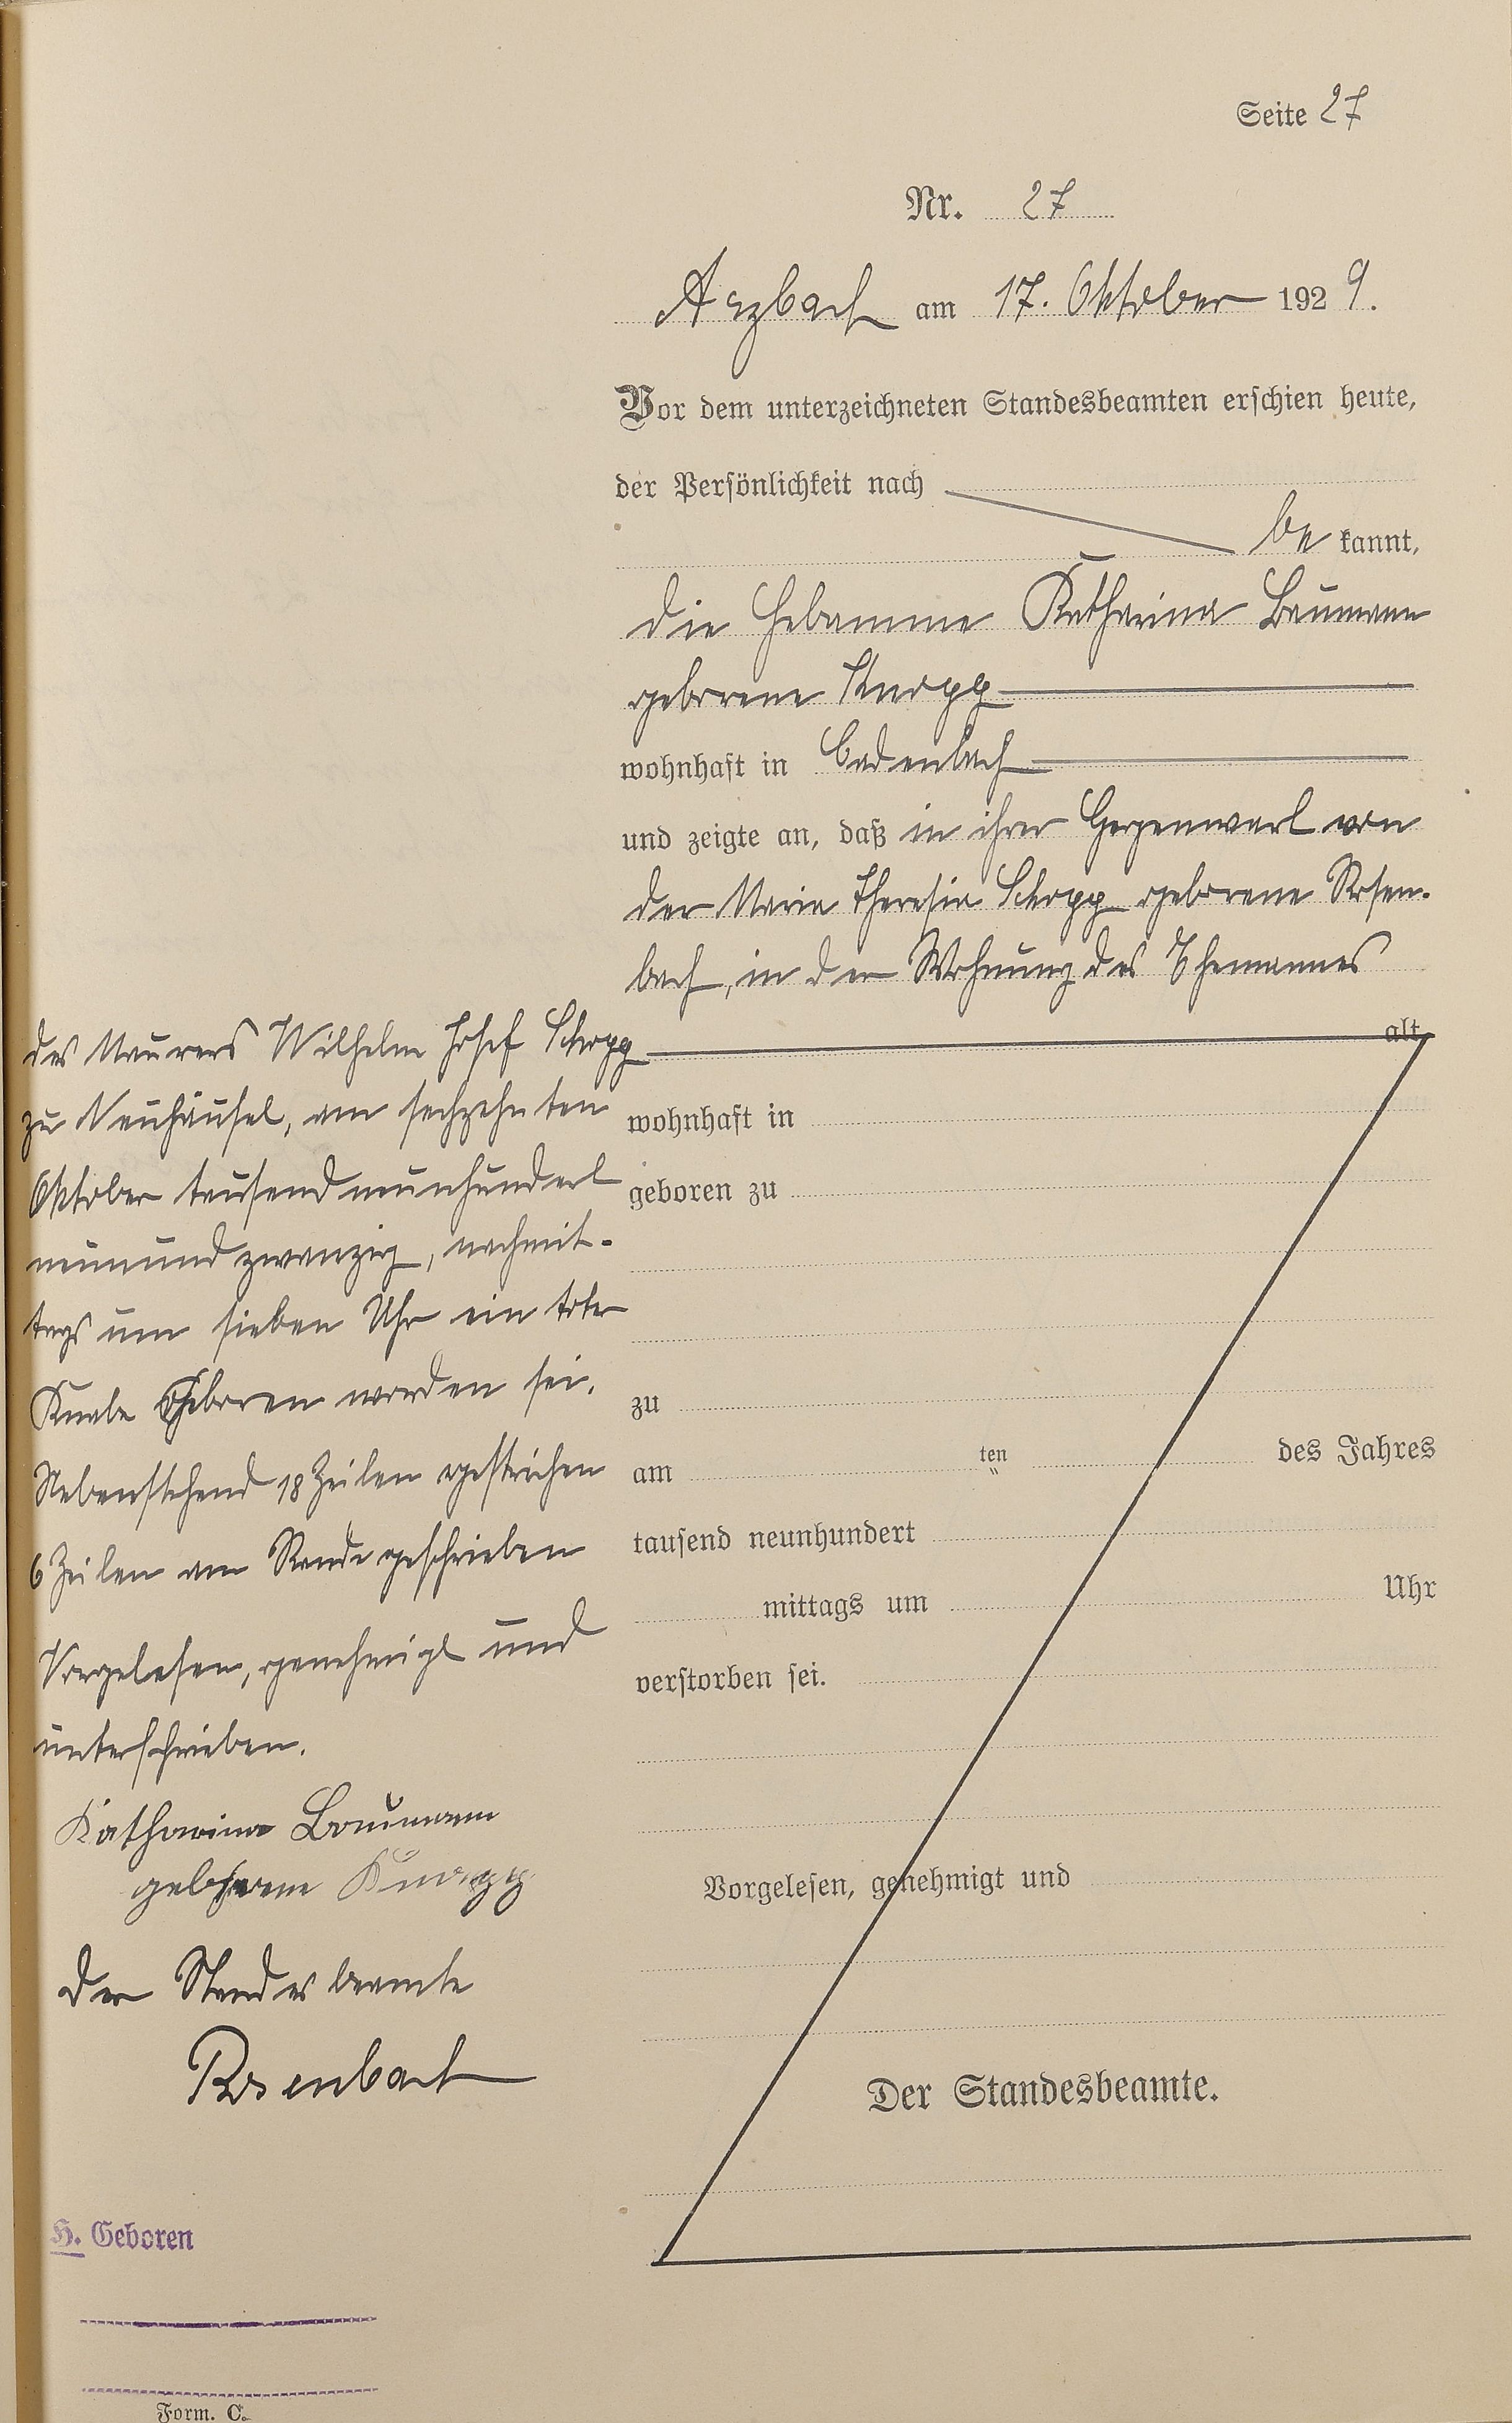 Seite 27
Nr. 27
Arzbach am 17. Oktober 1929.
Vor dem unterzeichneten Standesbeamten erschien heute,
der Persönlichkeit nach
be kannt,
die Hebamme Katharina Baumann
geborene Knopp
wohnhaft in Cadenbach
und zeigte an, daß in ihrer Gegenwart von
der Maria Theresia Schopp geborene Rosen-
bach, in der Wohnung des Ehemannes
des Maurers Wilhelm Josef Schopp
zu Neuhäusel, am sechzehnten
Oktober tausend neunhundert
neunundzwanzig, nachmit-
tags um sieben Uhr ein toter
Knabe geboren worden sei.
Nebenstehend 18 Zeilen gestrichen
6 Zeilen am Rande geschrieben
Vorgelesen, genehmigt und
unterschrieben.
Katharina Baumann
geborene Knopp
Der Standesbeamte
Rosenbach
H. Geboren
Form. C.
alt,
wohnhaft in
geboren zu
zu
am ten des Jahres
tausend neunhundert
mittags um Uhr
verstorben sei.
Vorgelesen, genehmigt und
Der Standesbeamte.